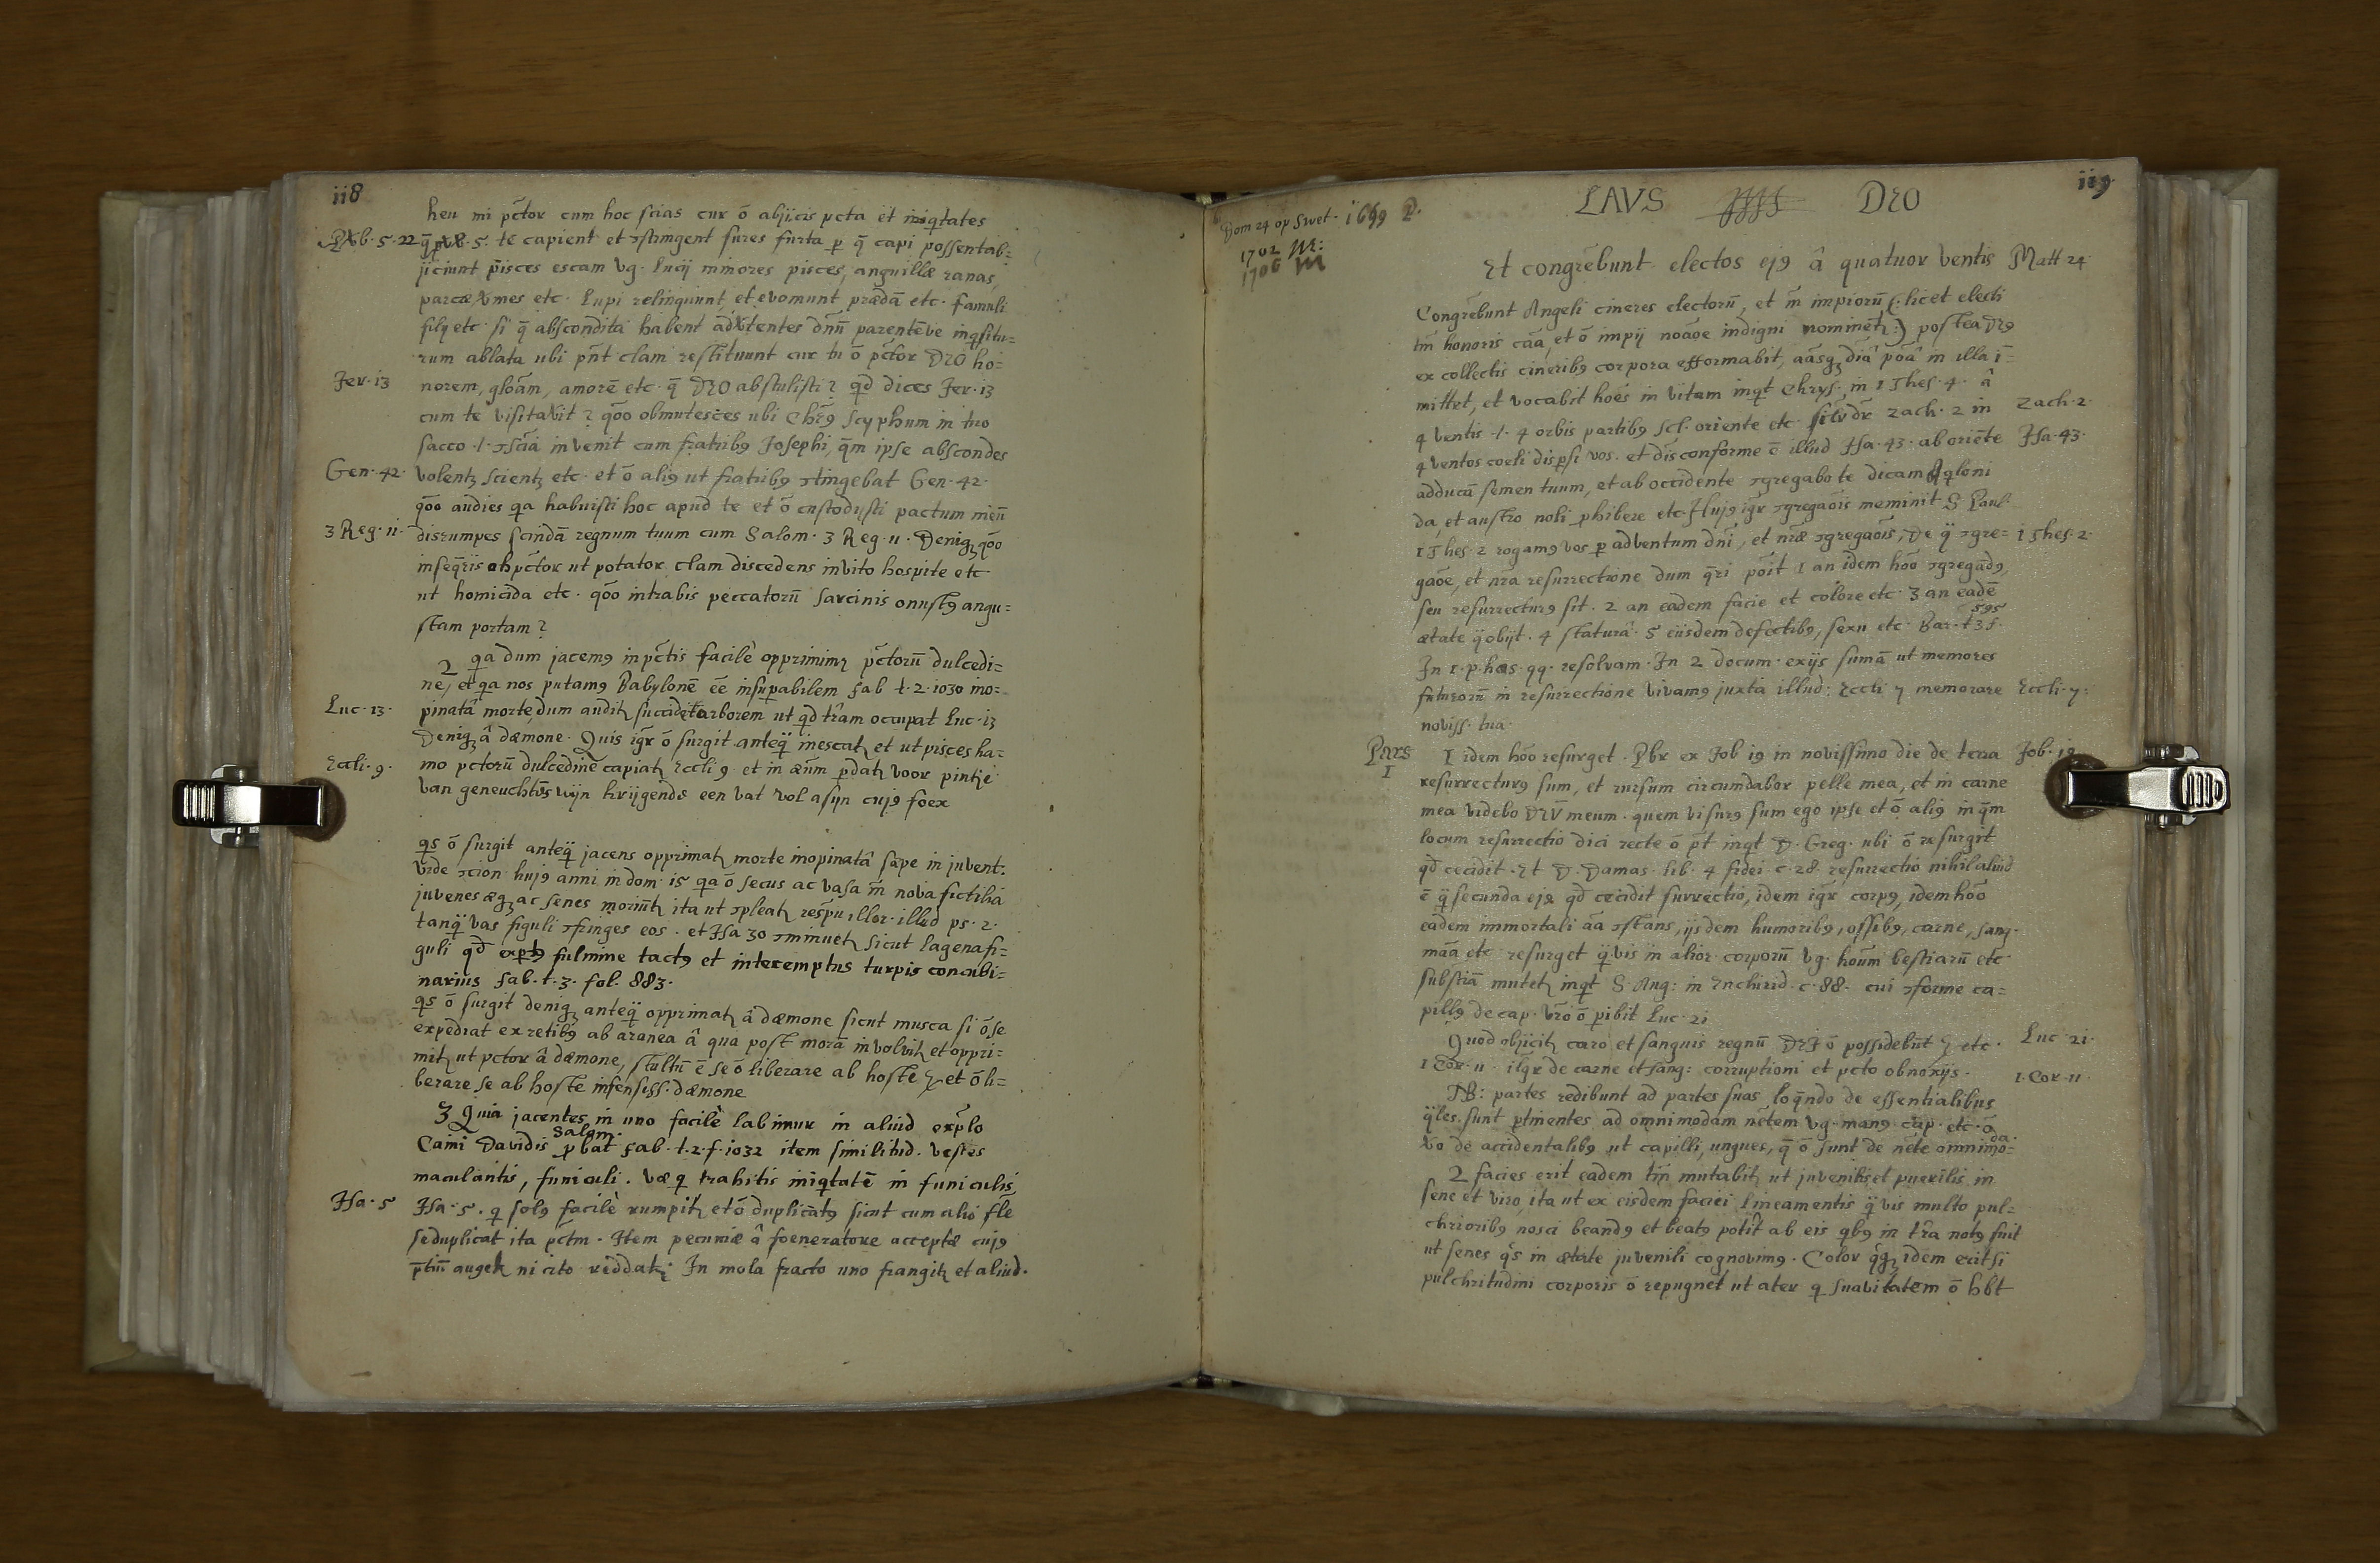 118
heu mi pc̄tor cum hoc scias cur ō abjicis pcta et iniqtates
Prb. 5. 22 q̄ 5. te capient et ꝯstringent fures furta p q̄ capi possent ab=
jiciunt pisces escam vg. lucij minores pisces, anguillæ ranas,
etc. Lupi relinquunt, et evomunt prædā etc. famuli
filij etc. si q̄ abscondita habent advertentes dn̄m parentēve inqsitu=
rum ablata ubi pn̄t clam restituunt cur tu ō pc̄tor DEO ho=
Jer. 13 norem, gloām, amorē etc. q̄ DEO abstulisti? qd dices Jer. 13
cum te visitavit? qōo obmutesces ubi Chrs̄ scyphum in tuo
sacco .i. ꝯsciā invenit cum fratribꝯ Josephi, q̄m ipse abscondes
Gen. 42. volentꝫ scientꝫ etc. et ō aliꝯ ut fratribꝯ ꝯtingebat Gen. 42.
qōo audies qa habuisti hoc apud te et ō custodisti pactum meū
3 Reg. 11. disrumpes scindā regnum tuum cum Salom. 3 Reg. 11. Deniqꝫ qōo
pc̄tor ut potator clam discedens invito hospite etc
ut homicida etc. qōo intrabis peccatorū sarcinis onustꝯ angu=
stam portam?
2 qa dum jacemꝯ in pc̄tis facilè opprimimꝫ pc̄torū dulcedi=
ne, et qa nos putamꝯ Babylonē ēe insupabilem fab t. 2. 1030 ino=
Luc. 13. pinatâ morte, dum auditꝫ succidet arborem ut qd tr̄am occupat Luc. 13
Deniqꝫ â dæmone. Quis igr̄ ō surgit anteq̄ inescatꝫ et ut pisces ha=
Eccli. 9. mo pctorū dulcedine capiatꝫ Eccli 9 et in æn̄m pdatꝫ voor pintje
van geneuchtēs wijn krijgende een vat vol asijn cujꝯ foex
qs ō surgit anteq̄ jacens opprimatꝫ morte inopinatâ sæpe in juvent.
Vide ꝯcion. hujꝯ anni in dom. 15 qa ō secus ac vasa m̄ nova fictilia
juvenes æqꝫ ac senes moriūtꝫ ita ut ꝯpleatꝫ respū illor. illud ps. 2.
tanq̄ vas figuli ꝯfringes eos. et Isa 30 ꝯminuetꝫ sicut lagena fi=
guli qd exptꝯ fulmine tactꝯ et interemptus turpis concubi=
narius fab. t. 3. fol. 883.
qs ō surgit deniqꝫ anteq̄ opprimatꝫ â dæmone sicut musca si ō se
expediat ex retibꝯ ab aranea â qua post morā involvitꝫ et oppri=
mitꝫ ut pctor â dæmone, stultū ē se ō liberare ab hoste et ō li=
berare se ab hoste infensiss. dæmone
3 Quia jacentes in uno facilè labimur in aliud explo
Caini Davidis Salom. pbat fab. t. 2. f. 1032 item similitud. vestes
maculantis, funiculi. væ q trahitis iniqtatē in funiculis
Isa. 5 Isa. 5. q solꝯ facilè rumpitꝫ et ō duplicatꝯ sicut cum alio fl̄e
se duplicat ita pc̄tm. Item pecuniæ â foeneratore acceptæ cujꝯ
ptm̄ augetꝫ ni cito reddatꝫ. In mola fracto uno frangitꝫ et aliud.
119
Dom 24 op Swet. 1699 P.
1702 M:
1706 M
LAVS DEO
Et congrēbunt electos ejꝯ â quatuor ventis Matt 24
Congrēbunt Angeli cineres electorū, et m̄ impiorū (: licet electi
tm̄ honoris cāa, et ō impij noāoe indigni nominētꝫ :) postea DEꝯ
ex collectis cineribꝯ corpora efformabit, aāsqꝫ diâ pōâ in illa ī=
mittet, et vocabit hoēs in vitam inqt Chrys. in 1 Thes. 4. â
4 ventis .i. 4 orbis partibꝯ scl. oriente etc. Zach. 2 in Zach. 2.
4 ventos coeli dispsi vos. et dis conforme ē illud Isa. 43. ab oriēte Isa. 43.
adducā semen tuum, et ab occidente ꝯgregabo te dicam Aqloni
da, et austro noli phibere etc. Hujꝯ igr̄ ꝯgregaōis meminit S. Paul.
1 Thes. 2 rogamꝯ vos p adventum dn̄i, et nr̄æ ꝯgregaōis, De q̄ ꝯgre= 1 Thes. 2.
gaōe, et nr̄a resurrectione dum q̄ri pōit 1 an idem hōo ꝯgregādꝯ,
seu resurrecturꝯ sit. 2 an eadem facie et colore etc. 3 an eadē
ætate q̄ obijt. 4 staturâ. 5 eiisdem defectibꝯ, sexu etc. Bar. t 3 f. 595
In 1. p. has. qq. resolvam. In 2 docum. ex ijs sumā ut memores
futurorū in resurrectione vivamꝯ juxta illud: Eccli 7 memorare Eccli. 7.
noviss. tua.
Pars 1 I idem hōo resurget. Pbr ex Job 19 in novissimo die de terra Job. 19
resurrecturꝯ sum, et rursum circumdabor pelle mea, et in carne
mea videbo DEŪ meum. quem visurꝯ sum ego ipse et ō aliꝯ in q̄m
locum resurrectio dici recte ō pt̄ inqt D. Greg. ubi ō resurgit
qd cecidit. Et D. Damas. lib. 4 fidei c. 28. resurrectio nihil aliud
ē q̄ secunda ejꝯ qd cecidit surrectio, idem igr̄ corpꝯ, idem hōo
eadem immortali aā ꝯstans, ijsdem humoribꝯ, ossibꝯ, carne, sang.
māa etc. resurget q̄vis in alior. corporū vg. hoūm bestiarū etc.
substiā mutetꝫ inqt S. Aug: in Enchirid. c. 88. cui ꝯforme ca=
pillꝯ de cap. vr̄o ō pibit Luc. 21
Quod objicitꝫ caro et sanguis regnū DEI ō possidebūt etc. Luc 21.
1 Cor. 11. itgr̄ de carne et sang: corruptioni et pcto obnoxijs. 1. Cor 11.
NB: partes redibunt ad partes suas loq̄ndo de essentialibus
q̄les sunt ptinentes ad omnimodam nētem vg. manꝯ cap. etc. ō
vo de accidentalibꝯ ut capilli, ungues, q̄ ō sunt de nēte omnimo=da.
2 facies erit eadem tm̄ mutabitꝫ ut juvenilis et puerilis in
sene et viro, ita ut ex eisdem faciei lineamentis q̄vis multo pul=
chrioribꝯ nosci beandꝯ et beatꝯ potit ab eis qbꝯ in tr̄a notꝯ fuit
ut senes qs in ætate juvenili cognovimꝯ. Color qqꝫ idem erit si
pulchritudini corporis ō repugnet ut ater q suavitatem ō hbt